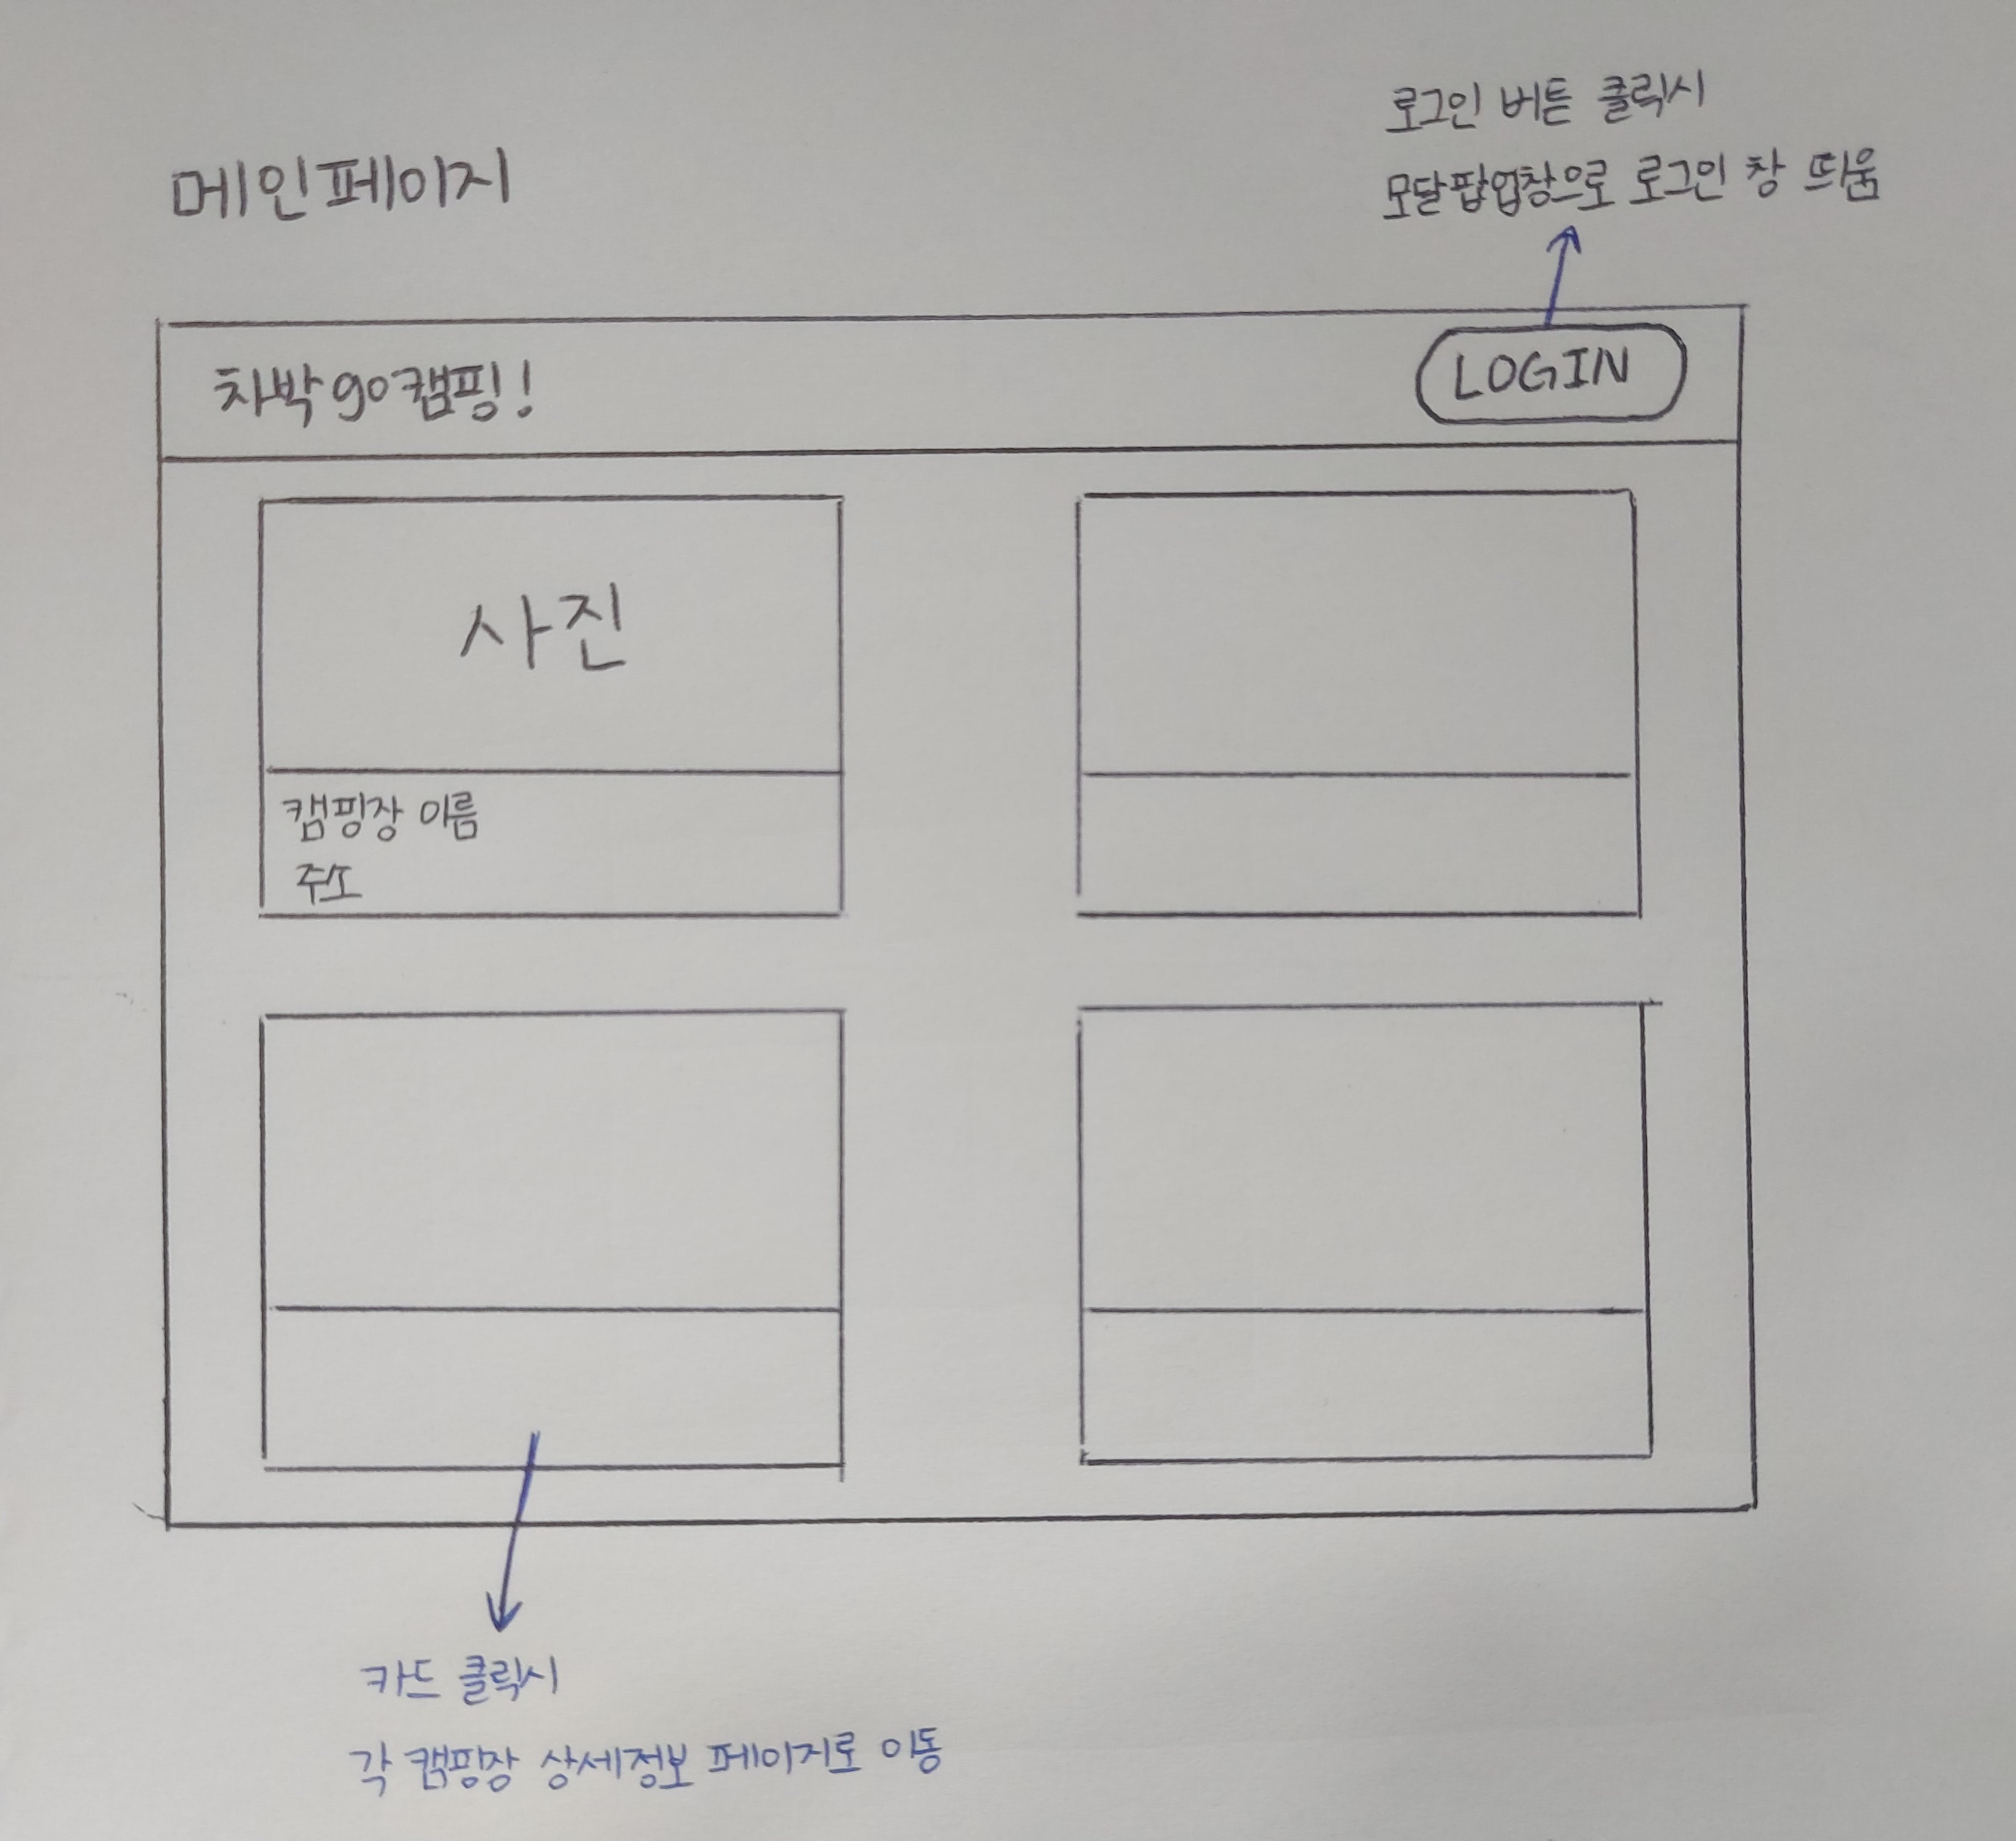 로그인 버튼 클릭시
모달팝업창으로 로그인 창 띄움
메인페이지
차박go캠핑!
LOGIN
사진
캠핑장 이름
주소
카드 클릭시
각 캠핑장 상세정보 페이지로 이동